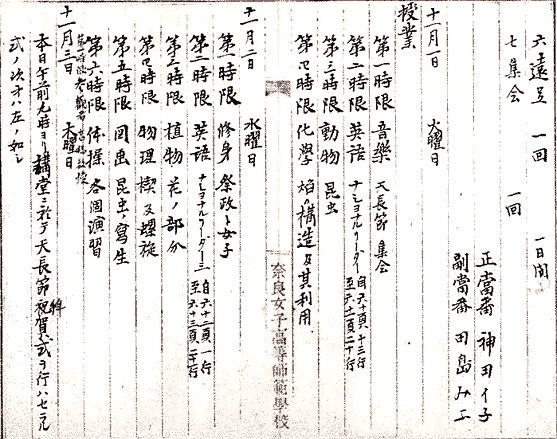 六遠足 一回 一日間
七集会 一回
正當番 神田イ子
副當番 田島みヱ
十一月一日 火曜日
授業
第一時限 音樂 天長節 集会
第二時限 英語 ナショナルリーダー三 自六十頁十三行 至六十二頁二十行
第三時限 動物 昆虫
第四時限 化學 焰ノ構造及其利用
奈良女子高等師範學校
十一月二日 水曜日
第一時限 修身 祭政ト女子
第二時限 英語 ナショナルリーダー三 自六十二頁一行 至六十三頁二十行
第三時限 植物 花ノ部分
第四時限 物理 楔及螺旋
第五時限 図画 昆虫ノ寫生
第六時限 体操 各個演習
十一月三日 木曜日
本日午前九時ヨリ講堂ニ於テ天長節祝賀式ヲ行ハセラル
式ノ次オハ左ノ如シ